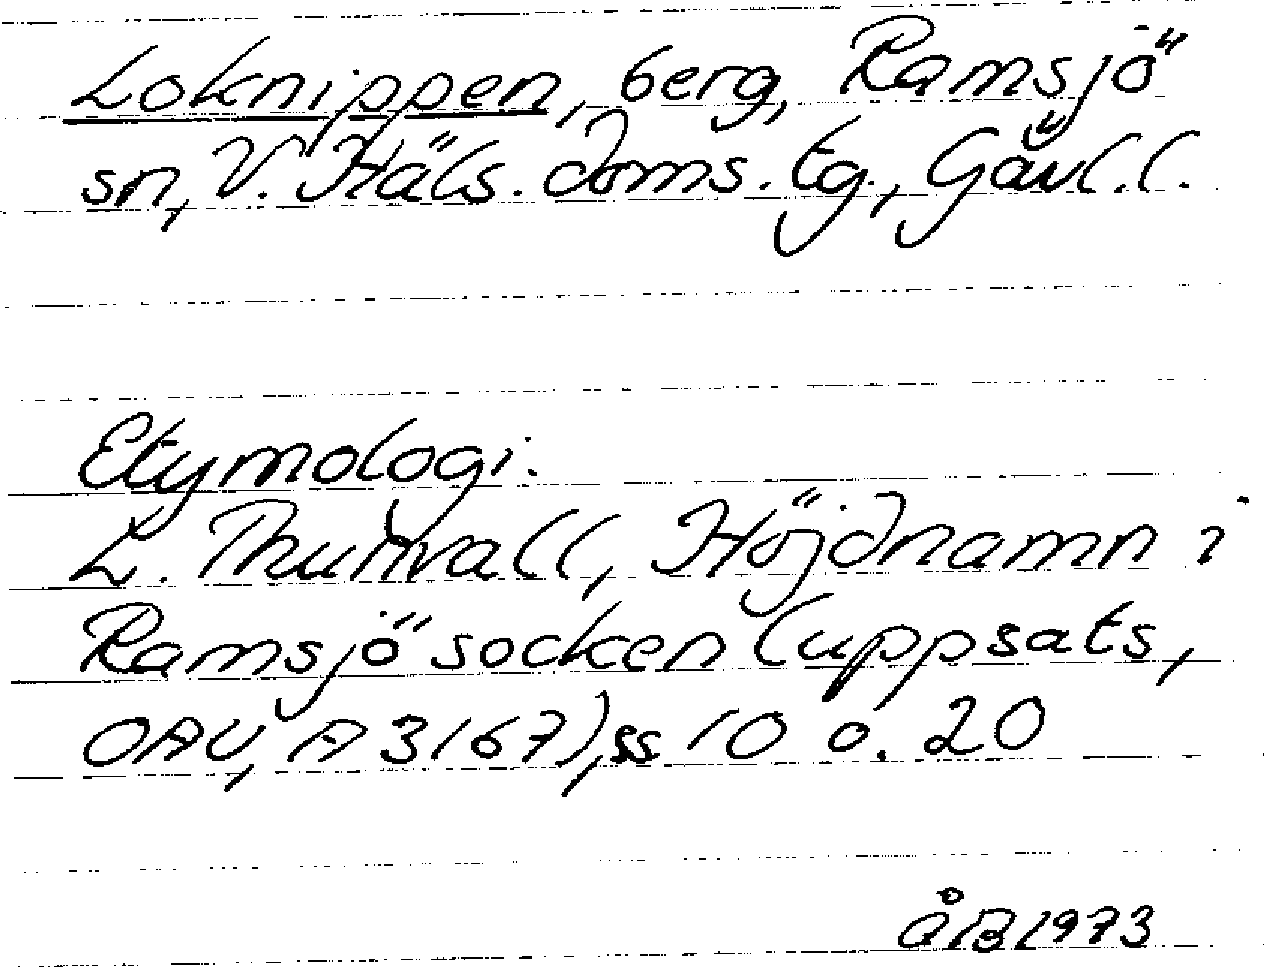 Loknippen, berg, Ramsjö
sn, V. Häls. doms. tg., Gävl. l.
Etymologi.
L. Thunvall, Höjdnamn i
Ramsjö socken (uppsats,
OAU, A 3167), ss 10 o. 20
ÅB 1973